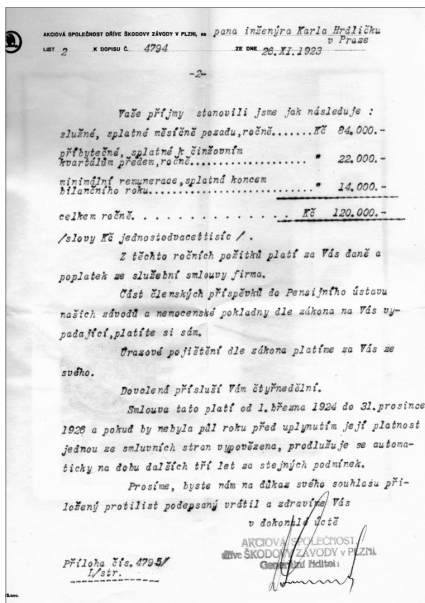 AKCIOVÁ SPOLEČNOST DŘÍVE ŠKODOVY ZÁVODY V PLZNI, na pana inženýra Karla Hrdličku
v Praze
LIST 2 K DOPISU Č. 4794 ZE DNE 26.XI.1923
-2-
Vaše příjmy stanovili jsme jak následuje :
služné, splatné měsíčně pozadu,ročně.......Kč 84.000.-
příbytečné, splatné k činžovním
kvartálům předem,ročně................. " 22.000.-
minimální remunerace,splatná koncem
bilančního roku........................ " 14.000.-
celkem ročně. . . . . . . . . . . . . . Kč 120.000.-
/slovy Kč jednostodvacettisíc / .
Z těchto ročních požitků platí za Vás daně a
poplatek ze služební smlouvy firma.
Část členských příspěvků do Pensijního ústavu
našich závodů a nemocenské pokladny dle zákona na Vás vy-
padající,platíte si sám.
Úrazové pojištění dle zákona platíme za Vás ze
svého.
Dovolená přísluší Vám čtyřnedělní.
Smlouva tato platí od 1.března 1924 do 31.prosince
1926 a pokud by nebyla půl roku před uplynutím její platnost
jednou ze smluvních stran vypovězena, prodlužuje se automa-
ticky na dobu dalších tří let za stejných podmínek.
Prosíme, byste nám na důkaz svého souhlasu při-
ložený protilist podepsaný vrátil a zdravíme Vás
v dokonalé úctě
AKCIOVÁ SPOLEČNOST
dříve ŠKODOVY ZÁVODY v PLZNI.
Generální ředitel:
Příloha čís. 4795/
I/str.